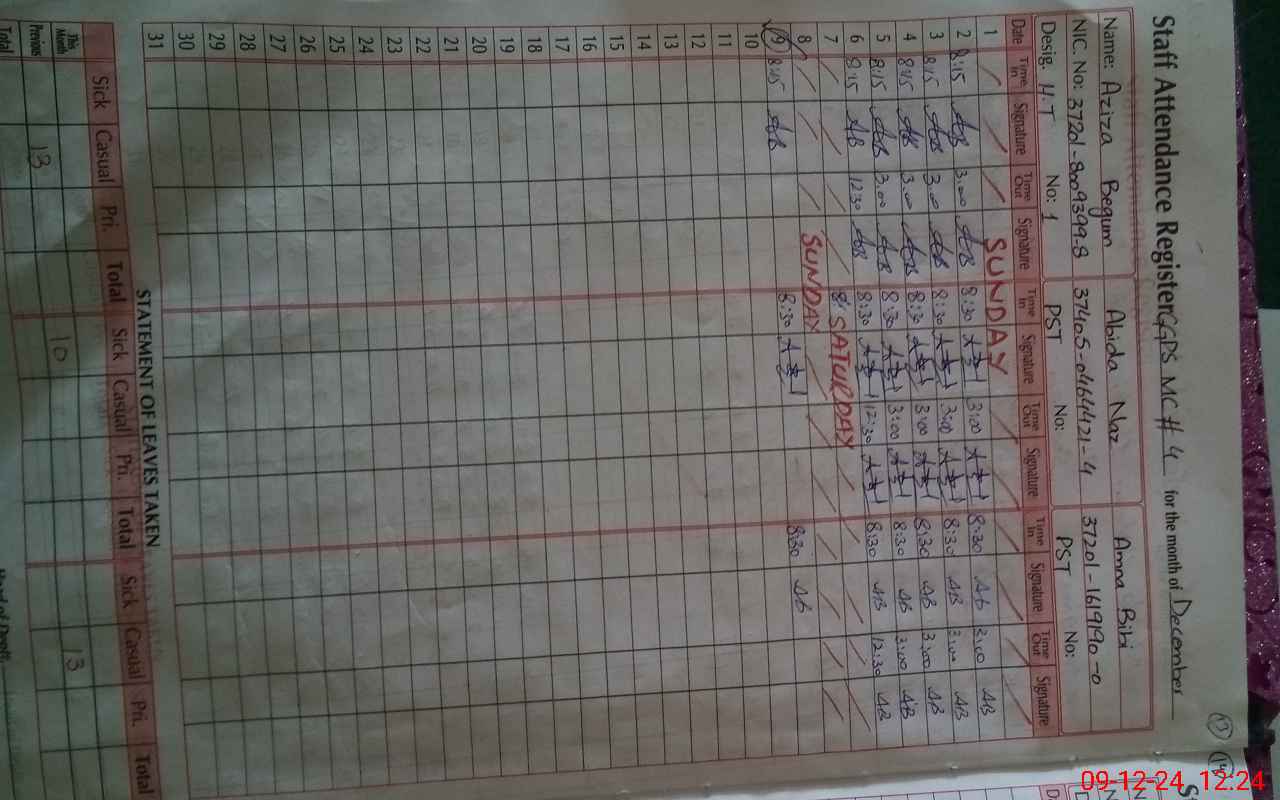 Staff Attendance Register GGPS MC # 4 for the month of December
Name: Aziza Begum Abida Naz Amna Bibi
NIC. No: 37201-8009399-8 37405-0464421-4 37201-1619190-0
Desig. H.T No: 1 PST No: PST No:
Date Time In Signature Time Out Signature Time In Signature Time Out Signature Time In Signature Time Out Signature
1 SUNDAY
2 8:15 AB 3.00 AB 8:30 3:00 8:30 AB 3:00 AB
3 8:15 AB 3.00 AB 8:30 3:00 8:30 AB 3:00 AB
4 8:15 AB 3.00 AB 8:30 3:00 8:30 AB 3:00 AB
5 8:15 AB 3.00 AB 8:30 3:00 8:30 AB 3:00 AB
6 8:15 AB 12:30 AB 8:30 12:30 8:30 AB 12:30 AB
7 8: SATURDAY
8 SUNDAY
9 8:15 AB 8:30 8:30 AB
10
11
12
13
14
15
16
17
18
19
20
21
22
23
24
25
26
27
28
29
30
31
STATEMENT OF LEAVES TAKEN
Sick Casual Pri. Total Sick Casual Pri. Total Sick Casual Pri. Total
This Month 10 13
Previous 13
Total
13 14
09-12-24 12:24